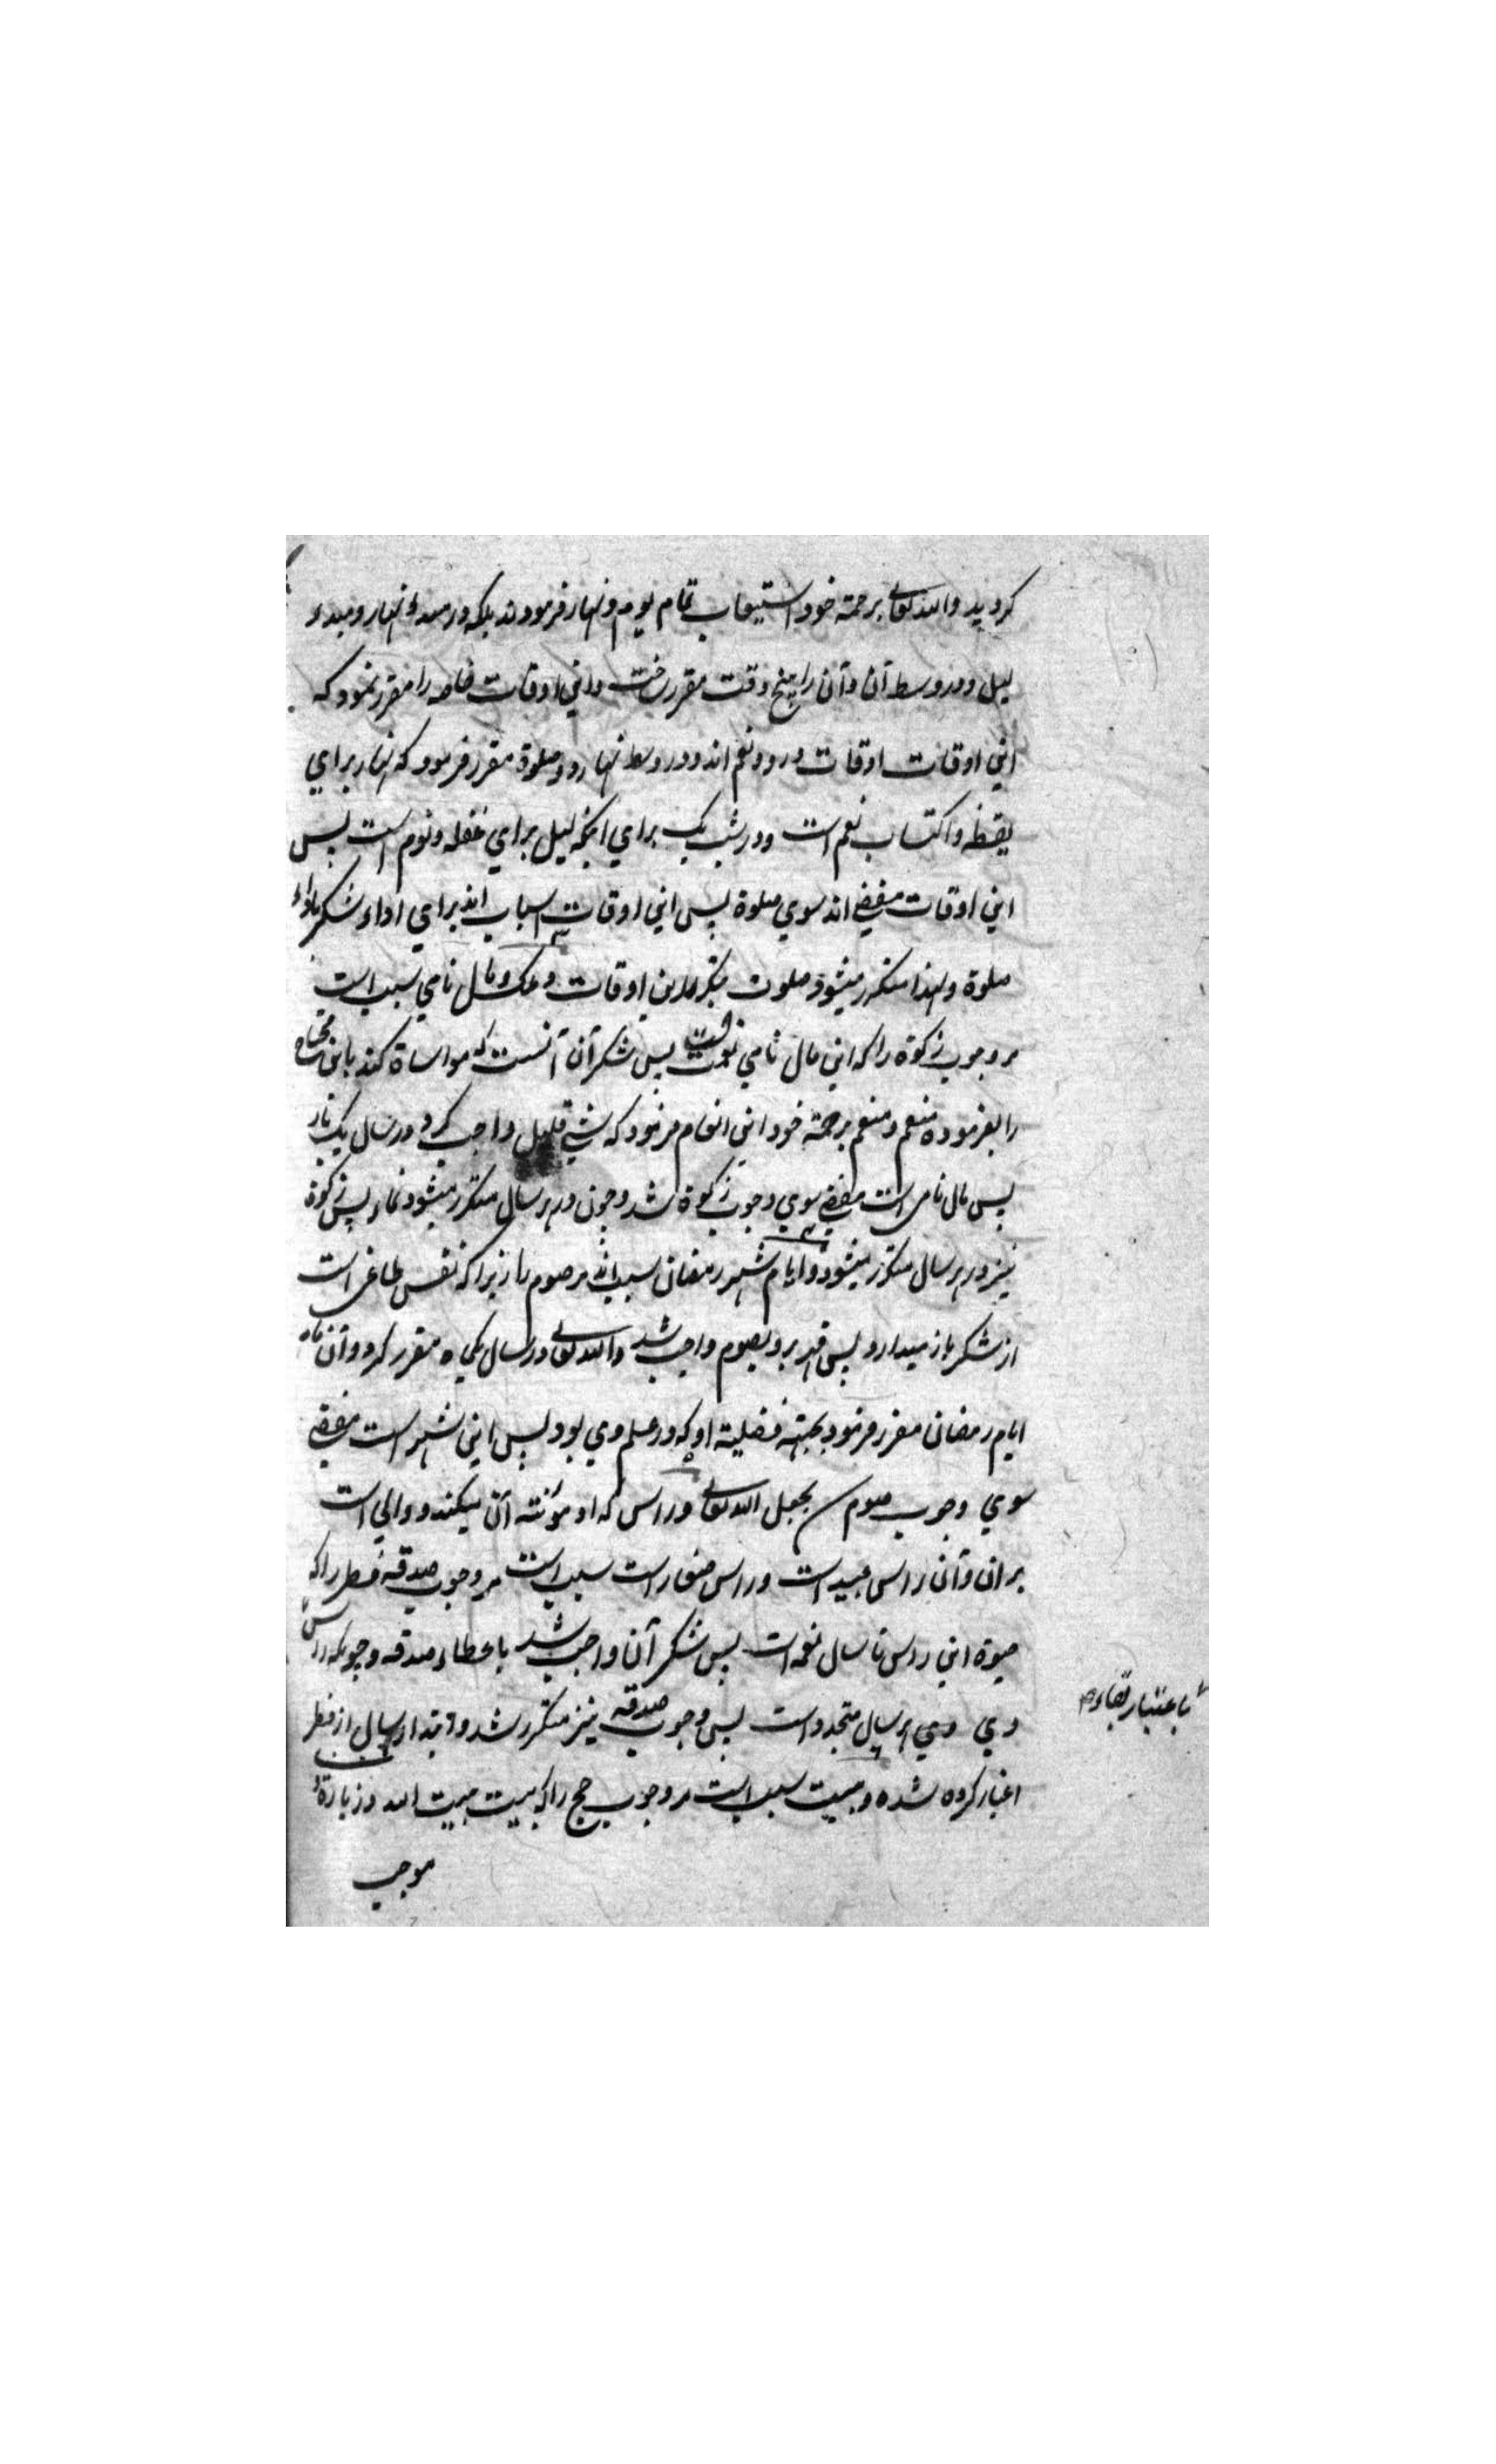 کردید والله تعالی برحمته خود استیعاب تمام یوم و نهار فرمودند بلکه در مبدء نهار و مبدء
لیل و در وسط آن وآن را پنج وقت مقرر ساخت واین اوقات خاصه را مقرر نمود که
این اوقات اوقات ورود نعم اند و در وسط نهار دو صلوة مقرر فرمود که نهار برای
یقظه و اکتساب نعم است و در شب یک برای اینکه لیل برای غفله و نوم است پس
این اوقات مفضی اند سوی صلوة پس این اوقات اسباب اند برای اداء شکر باداء
صلوة ولهذا متکرر میشود صلوت بتکرر این اوقات و ملک مال نامی سبب است
مر وجوب زکوة را که این مال نامی نعمت است پس شکر آن آنست که مواساة کند باین محتاج
را بفرموده منعم و منعم برحمته خود این انعام فرمود که شیء قلیل واجب کرد در سال یک بار
پس مال نامی است مفضی سوی وجوب زکوة شد و چون در هر سال متکرر میشود نماء پس زکوة
نیز در هر سال متکرر میشود و ایام شهر رمضان سبب اند مر صوم را زیرا که نفس طاغی است
از شکر باز میدارد پس قهر برو بصوم واجب شد والله تعالی در سال یکماه مقرر کرد و آن ماه
ایام رمضان مقرر فرمود بجهته فضلیته او که در علم وی بود پس این شهر است مفضی
سوی وجوب صوم بجعل الله تعالی و راس که او مؤنته آن میکند و والی است
بر ان وآن راس عبید است و راس صغار است سبب است مر وجوب صدقه فطر را که
حیوة این راس تا سال نعمه است پس شکر آن واجب شد باعطاء صدقه و چونکه راس
باعتبار بقاء
وی وی هر سال متجدد است پس وجوب صدقه نیز متکرر شد و ابتداء سال از فطر
اعتبار کرده شده و بیت سبب است مر وجوب حج را که بیت بیت الله و زیارة
موجب